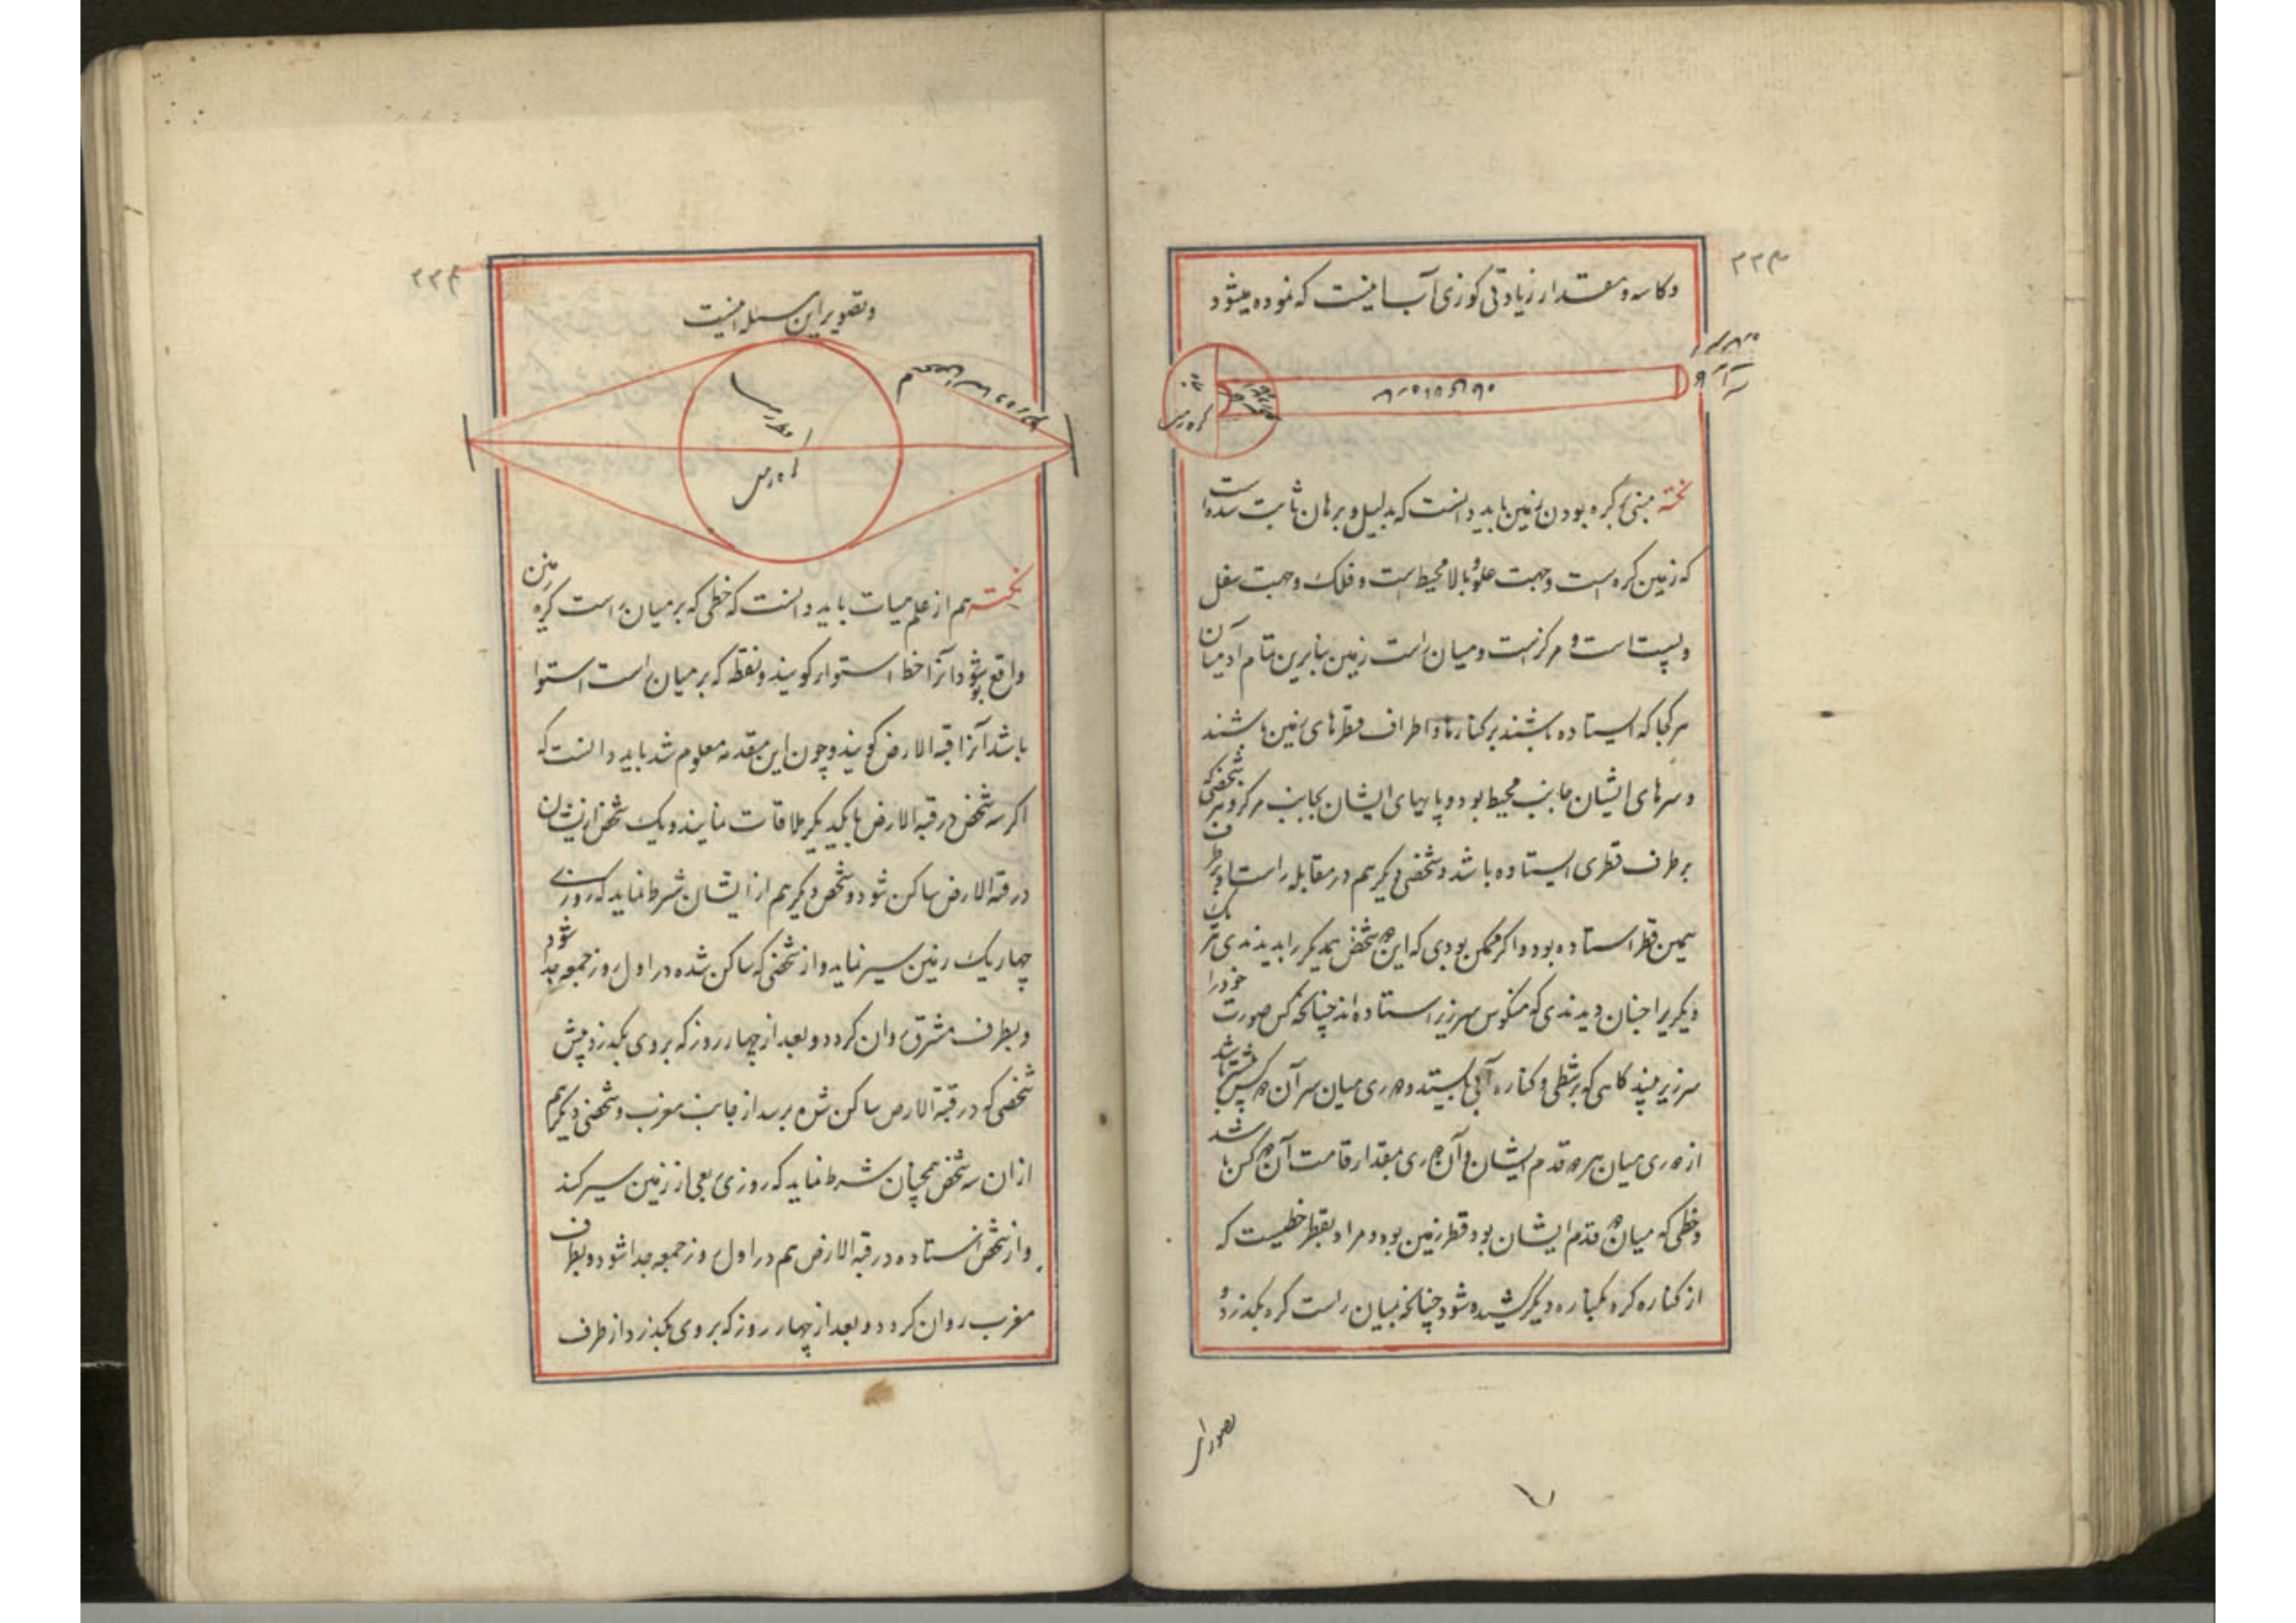 ۲۲۳
وکاسه و مقدار زیادتی کوزی آب اینست که نموده میشود
کره زمین
نکته مبنی بر کره بودن زمین باید دانست که بدلیل و برهان ثابت شده است
که زمین کره است و جهت علو و بالا محیط است و فلک و جهت سفل
و پست است و مرکز است و میان راست زمین بنابرین تمام آدمیان
هر کجا که ایستاده باشند بر کنارها و اطراف قطرهای زمین باشند
و سرهای ایشان جانب محیط بود و پایهای ایشان بجانب مرکز و هر شخصی که
بر طرف قطری ایستاده باشد و شخصی دیگر هم در مقابله راست او بر طرف
همین قطر استاده بود و اگر ممکن بودی که این دو شخص یکدیگر را بدیدندی هر یک
دیگری را چنان دیدندی که منکوس سر زیر استاده اند چنانکه کس صورت خود را
سر زیر بیند گاهی که بر شطی و کناره آبی بایستد و دوری میان سر آن دو کس بیشتر باشد
از دوری میان هر دو قدم ایشان و آن دوری مقدار قامت آن دو کس باشد
و خطی که میان دو قدم ایشان بود قطر زمین بود و مراد بقطر خطیست که
از کناره کره بکناره دیگر کشیده شود چنانکه بمیان راست کره بگذرد و
۲۲۴
و تصویر این مسئله اینست
کره زمین
نکته هم از علم هیات باید دانست که خطی که بر میان راست کره زمین
واقع شود آنرا خط استوا گویند و نقطه که بر میان راست استوا
باشد آنرا قبه الارض گویند و چون این مقدمه معلوم شد باید دانست که
اگر سه شخص در قبه الارض با یکدیگر ملاقات نمایند و یک شخص از ایشان
در قبه الارض ساکن شود و شخص دیگر هم از ایشان شرط نماید که روزی
چهار یک زمین سیر نماید و از شخصی که ساکن شده در اول روز جمعه جدا شود
و بطرف مشرق روان گردد و بعد از چهار روز که بر وی بگذرد پیش
شخصی که در قبة الارض ساکن شده برسد از جانب مغرب و شخصی دیگر هم
از ان سه شخص همچنان شرط نماید که روزی ربعی از زمین سیر کند
و از شخص استاده در قبه الارض هم در اول روز جمعه جدا شود و بطرف
مغرب روان گردد و بعد از چهار روز که بر وی بگذرد از طرف